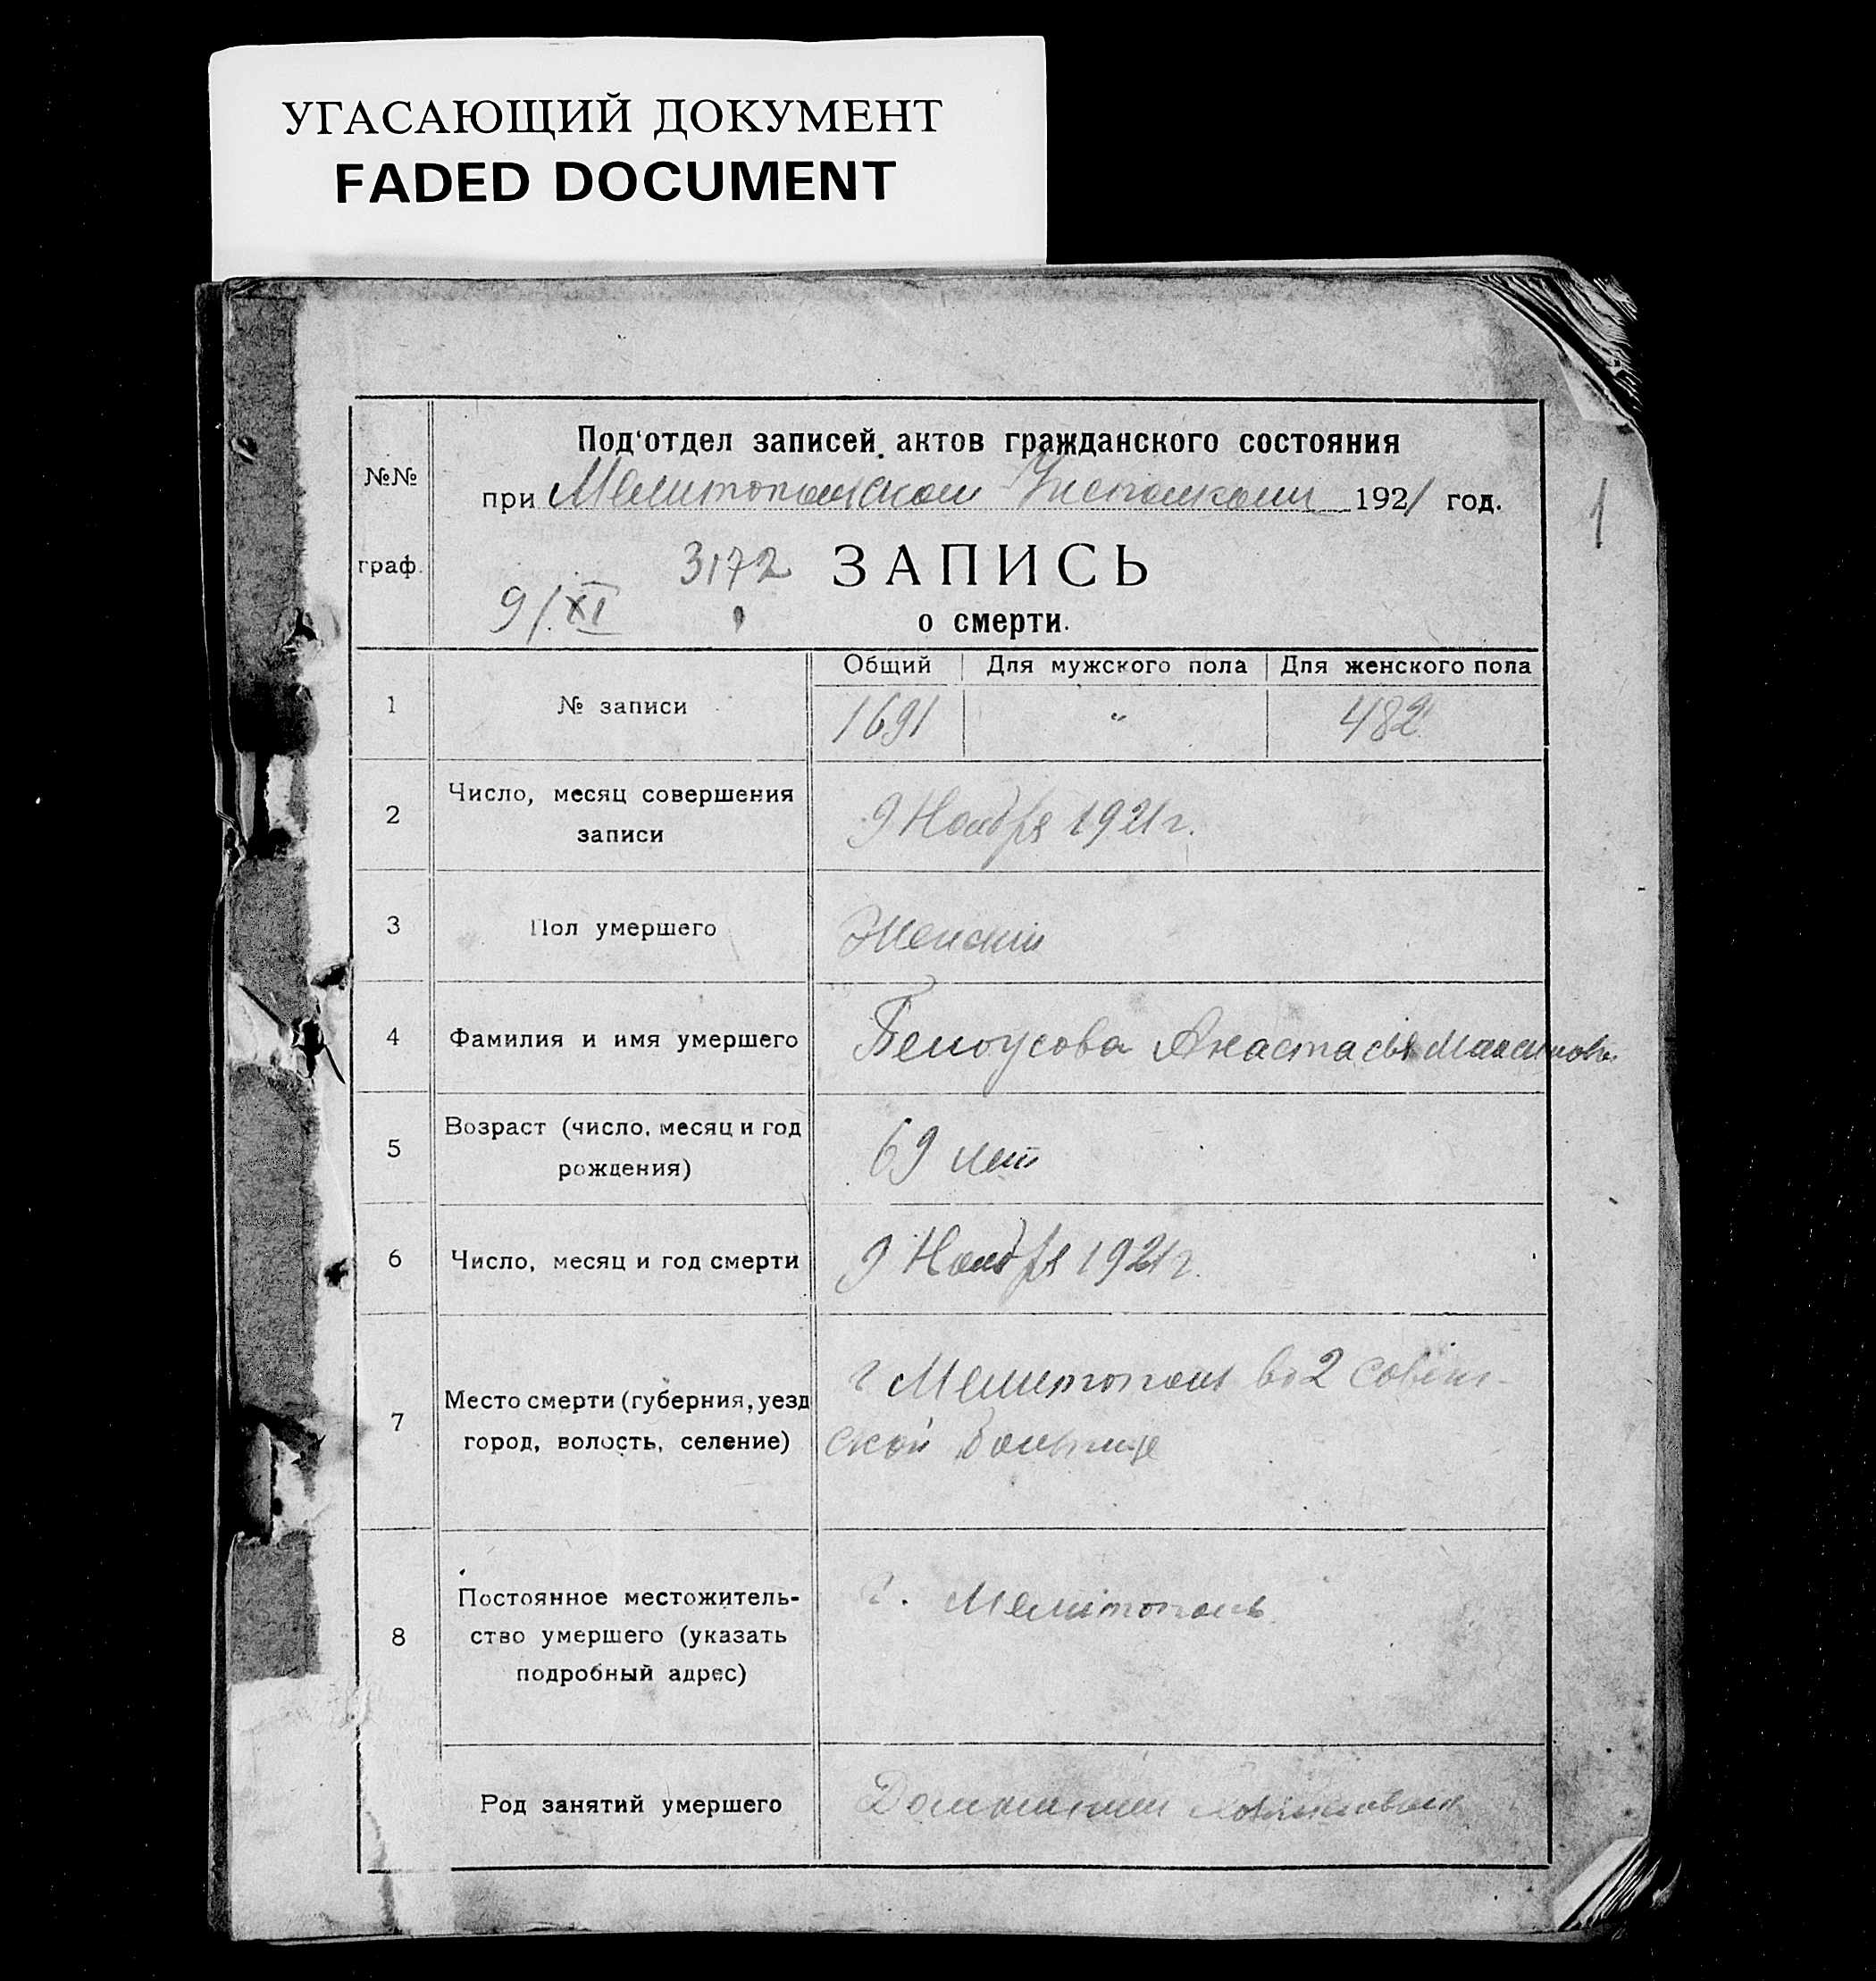 УГАСАЮЩИЙ ДОКУМЕНТ
FADED DOCUMENT
№№
граф.
Под'отдел записей актов гражданского состояния
при Мелитопольском Исполкоме 1921 год.
1
3172 ЗАПИСЬ
9/XI
о смерти.
Общий Для мужского пола Для женского пола
1 № записи 1691 " 482
2 Число, месяц совершения
записи
9 Ноября 1921 г.
3 Пол умершего Женский
4 Фамилия и имя умершего Белоусова Анастасія Максимовн
5 Возраст (число, месяц и год
рождения)
69 лет
6 Число, месяц и год смерти 9 Ноября 1921 г.
7 Место смерти (губерния, уезд
город, волость, селение)
г Мелитополь во 2 Совет-
ской больнице
8 Постоянное местожитель-
ство умершего (указать
подробный адрес)
г. Мелитополь
Род занятий умершего Домашним